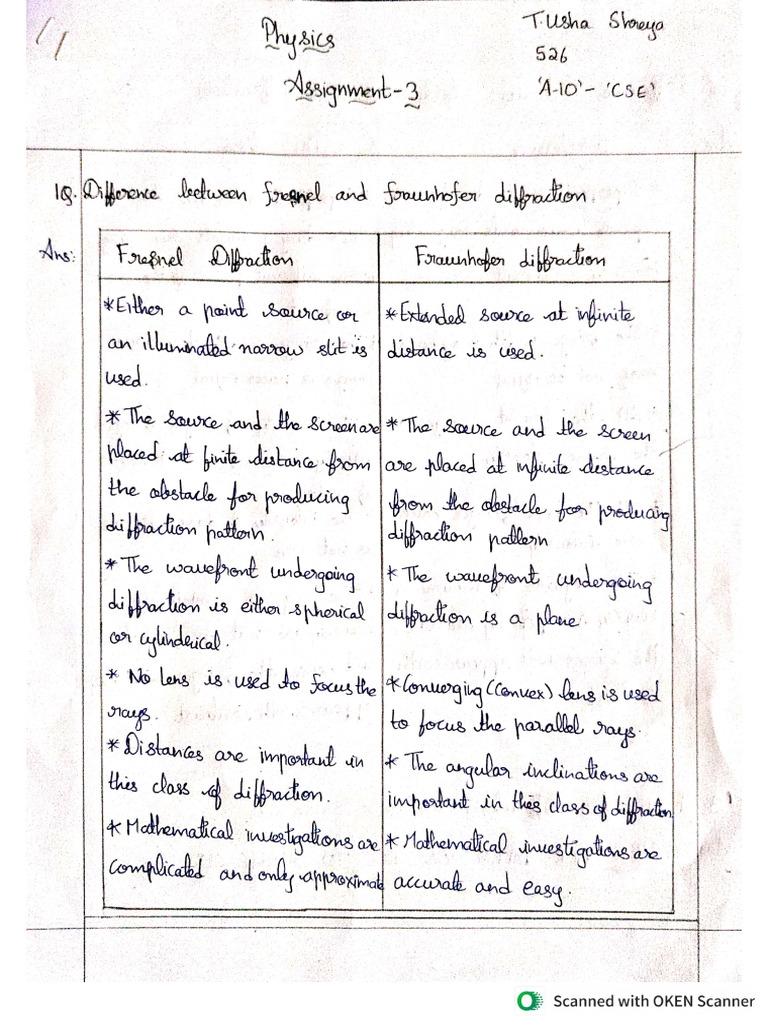 Physics
T. Usha Shreya
526
Assignment-3
'A-10'- 'CSE'
1Q. Difference between fresnel and fraunhofer diffraction.
Ans:
Fresnel Diffraction
Fraunhofer diffraction
*Either a point source or
an illuminated narrow slit is
used.
*Extended source at infinite
distance is used.
*The source and the screen are
placed at finite distance from
the obstacle for producing
diffraction pattern.
*The source and the screen
are placed at infinite distance
from the obstacle for producing
diffraction pattern
*The wavefront undergoing
diffraction is either spherical
or cylinderical.
*The wavefront undergoing
diffraction is a plane
* No Lens is used to focus the
rays.
*Converging (convex) lens is used
to focus the parallel rays.
*Distances are important in
this class of diffraction.
* The angular inclinations are
important in this class of diffraction
* Mathematical investigations are
complicated and only approximate
* Mathematical investigations are
accurate and easy.
Scanned with OKEN Scanner